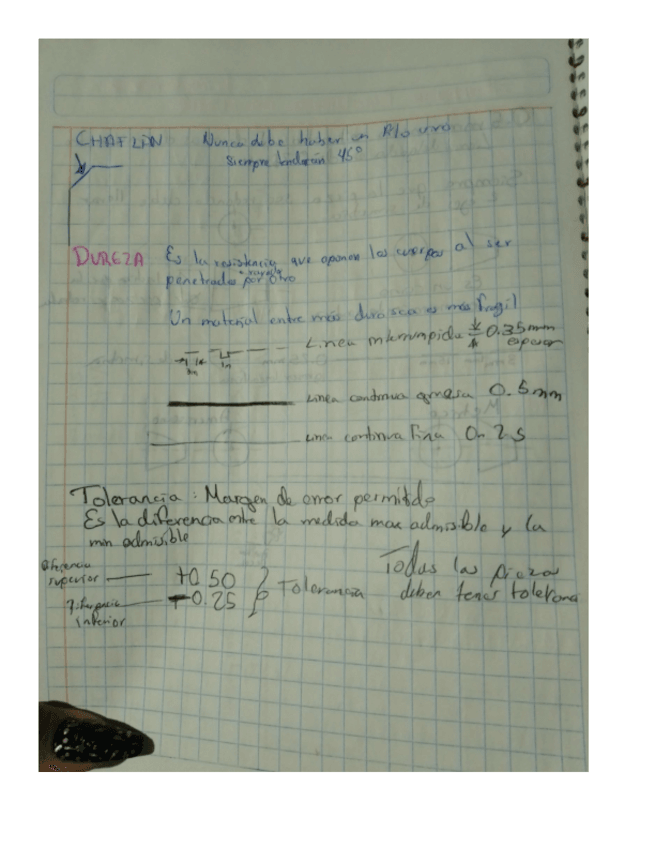 CHAFLAN Nunca debe haber un filo vivo
siempre tendran 45°
DUREZA Es la resistencia que oponen los cuerpos al ser
penetrados por otro
Un material entre más duro sea es más fragil
Linea interrumpida 0.35mm
espesor
Linea continua gruesa 0.5mm
Linea continua fina 0.25
Tolerancia: Margen de error permitido
Es la diferencia entre la medida max admisible y la
min admisible
superior +0.50
-0.25 } Tolerancia
inferior
Todas las piezas
deben tener